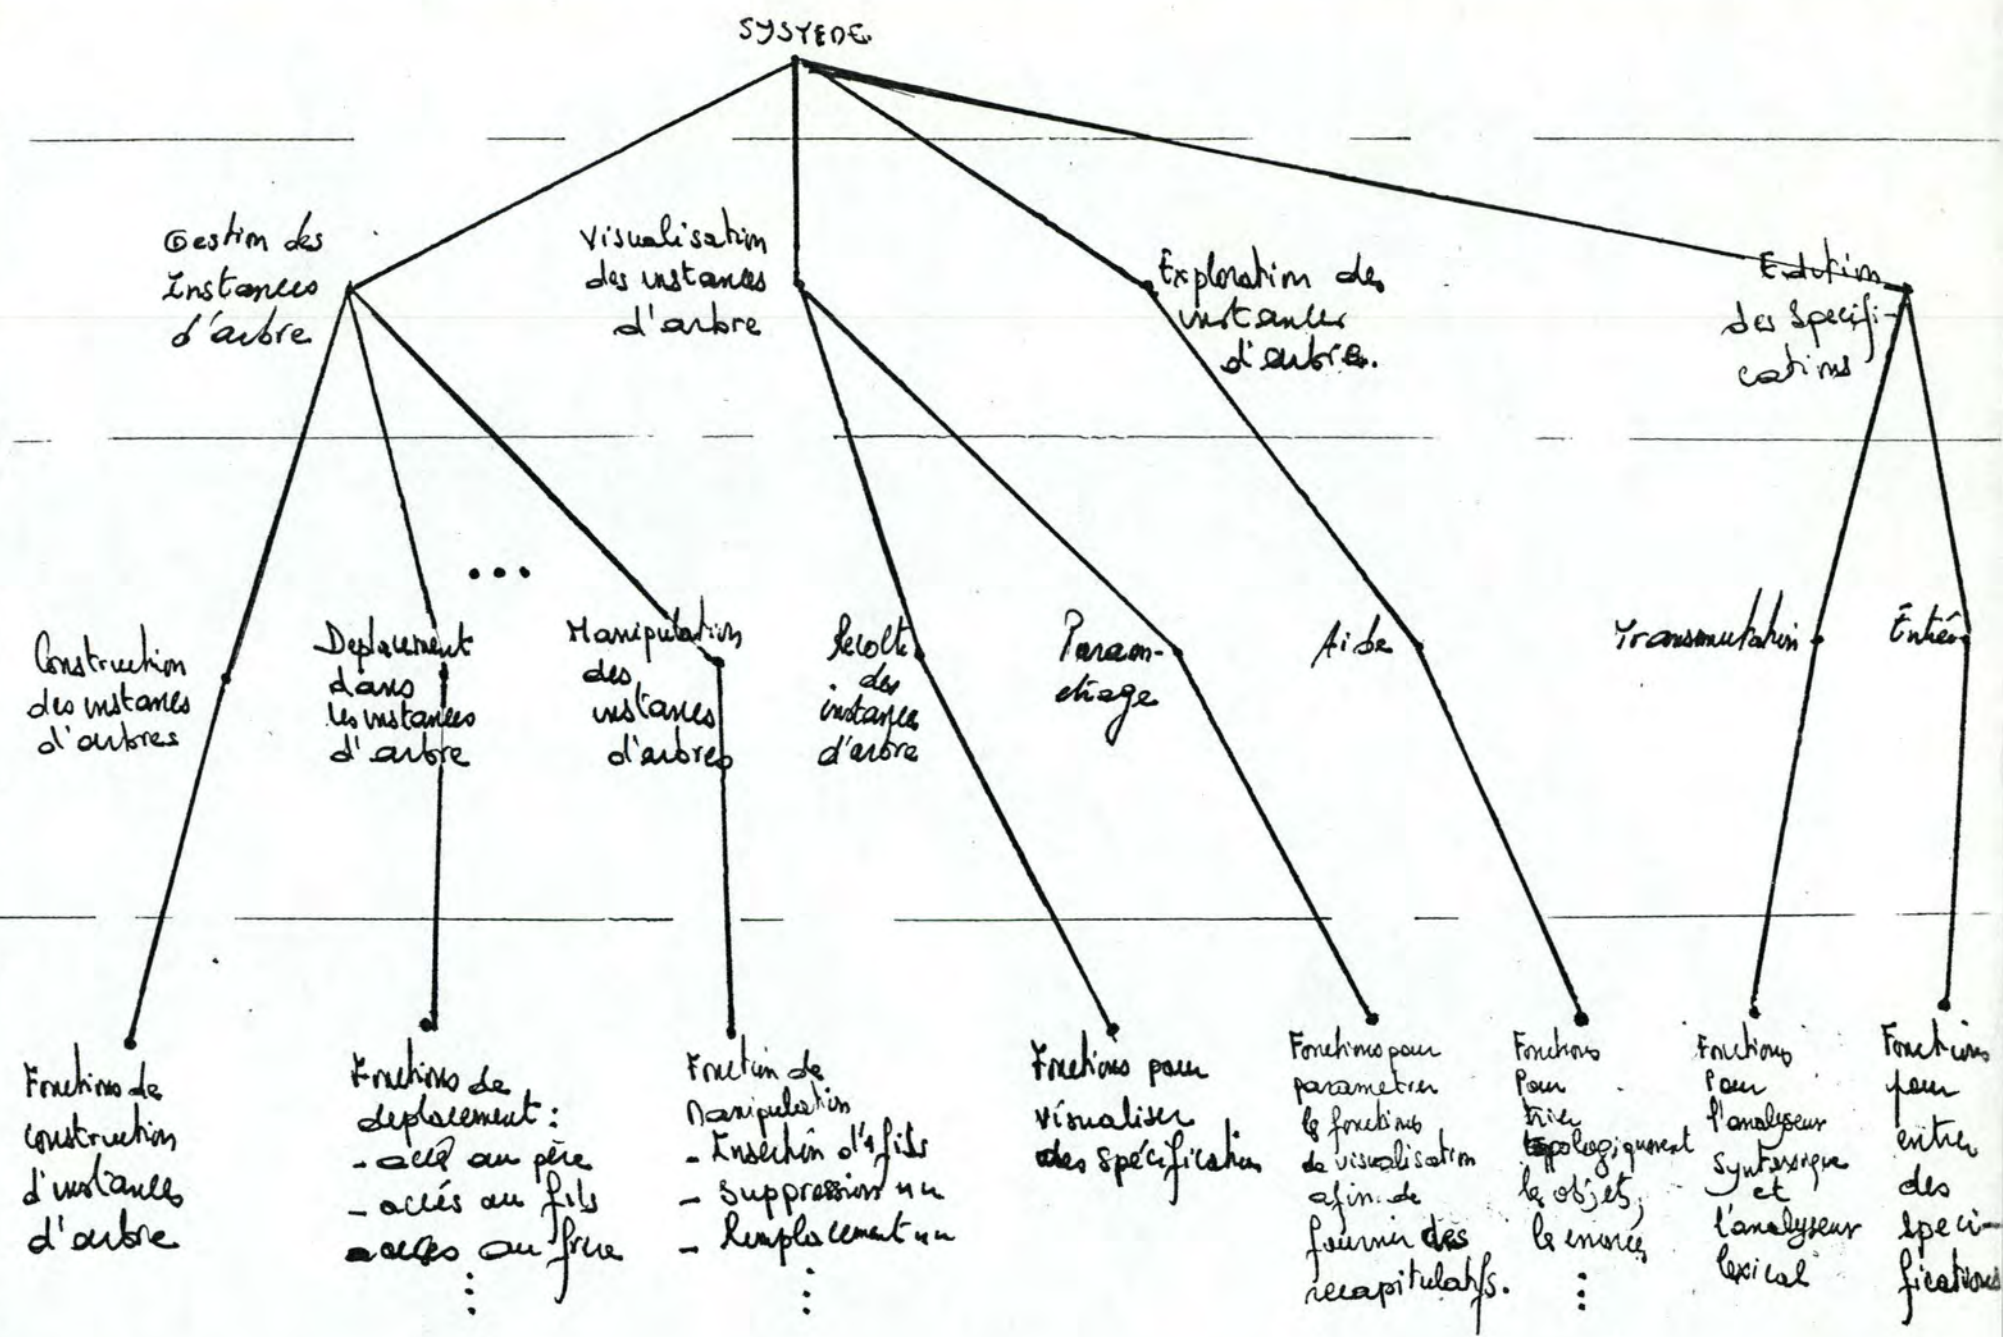 SYSTEME
Gestion des
Instances
d'arbre
Visualisation
des instances
d'arbre
Exploration des
instances
d'arbre.
Edition
des Specifi-
cations
Construction
des instances
d'arbres
Deplacement
dans
les instances
d'arbre
...
Manipulation
des
instances
d'arbres
Recolte
des
instances
d'arbre
Param-
etrage
Aide
Transmutation
Entrée
Fonctions de
construction
d'instances
d'arbre
Fonctions de
deplacement :
- accès au père
- accés au fils
- acces au frere
Fonction de
Manipulation
- Insertion d'1 fils
- Suppression
- Remplacement
Fonctions pour
visualiser
des spécification
Fonctions pour
parametrer
les fonctions
de visualisation
afin de
fournir des
recapitulatifs.
Fonctions
Pour
trier
topologiquement
les objets,
les
Fonctions
Pour
l'analyseur
syntaxique
et
l'analyseur
lexical
Fonctions
pour
entrer
des
speci-
fications